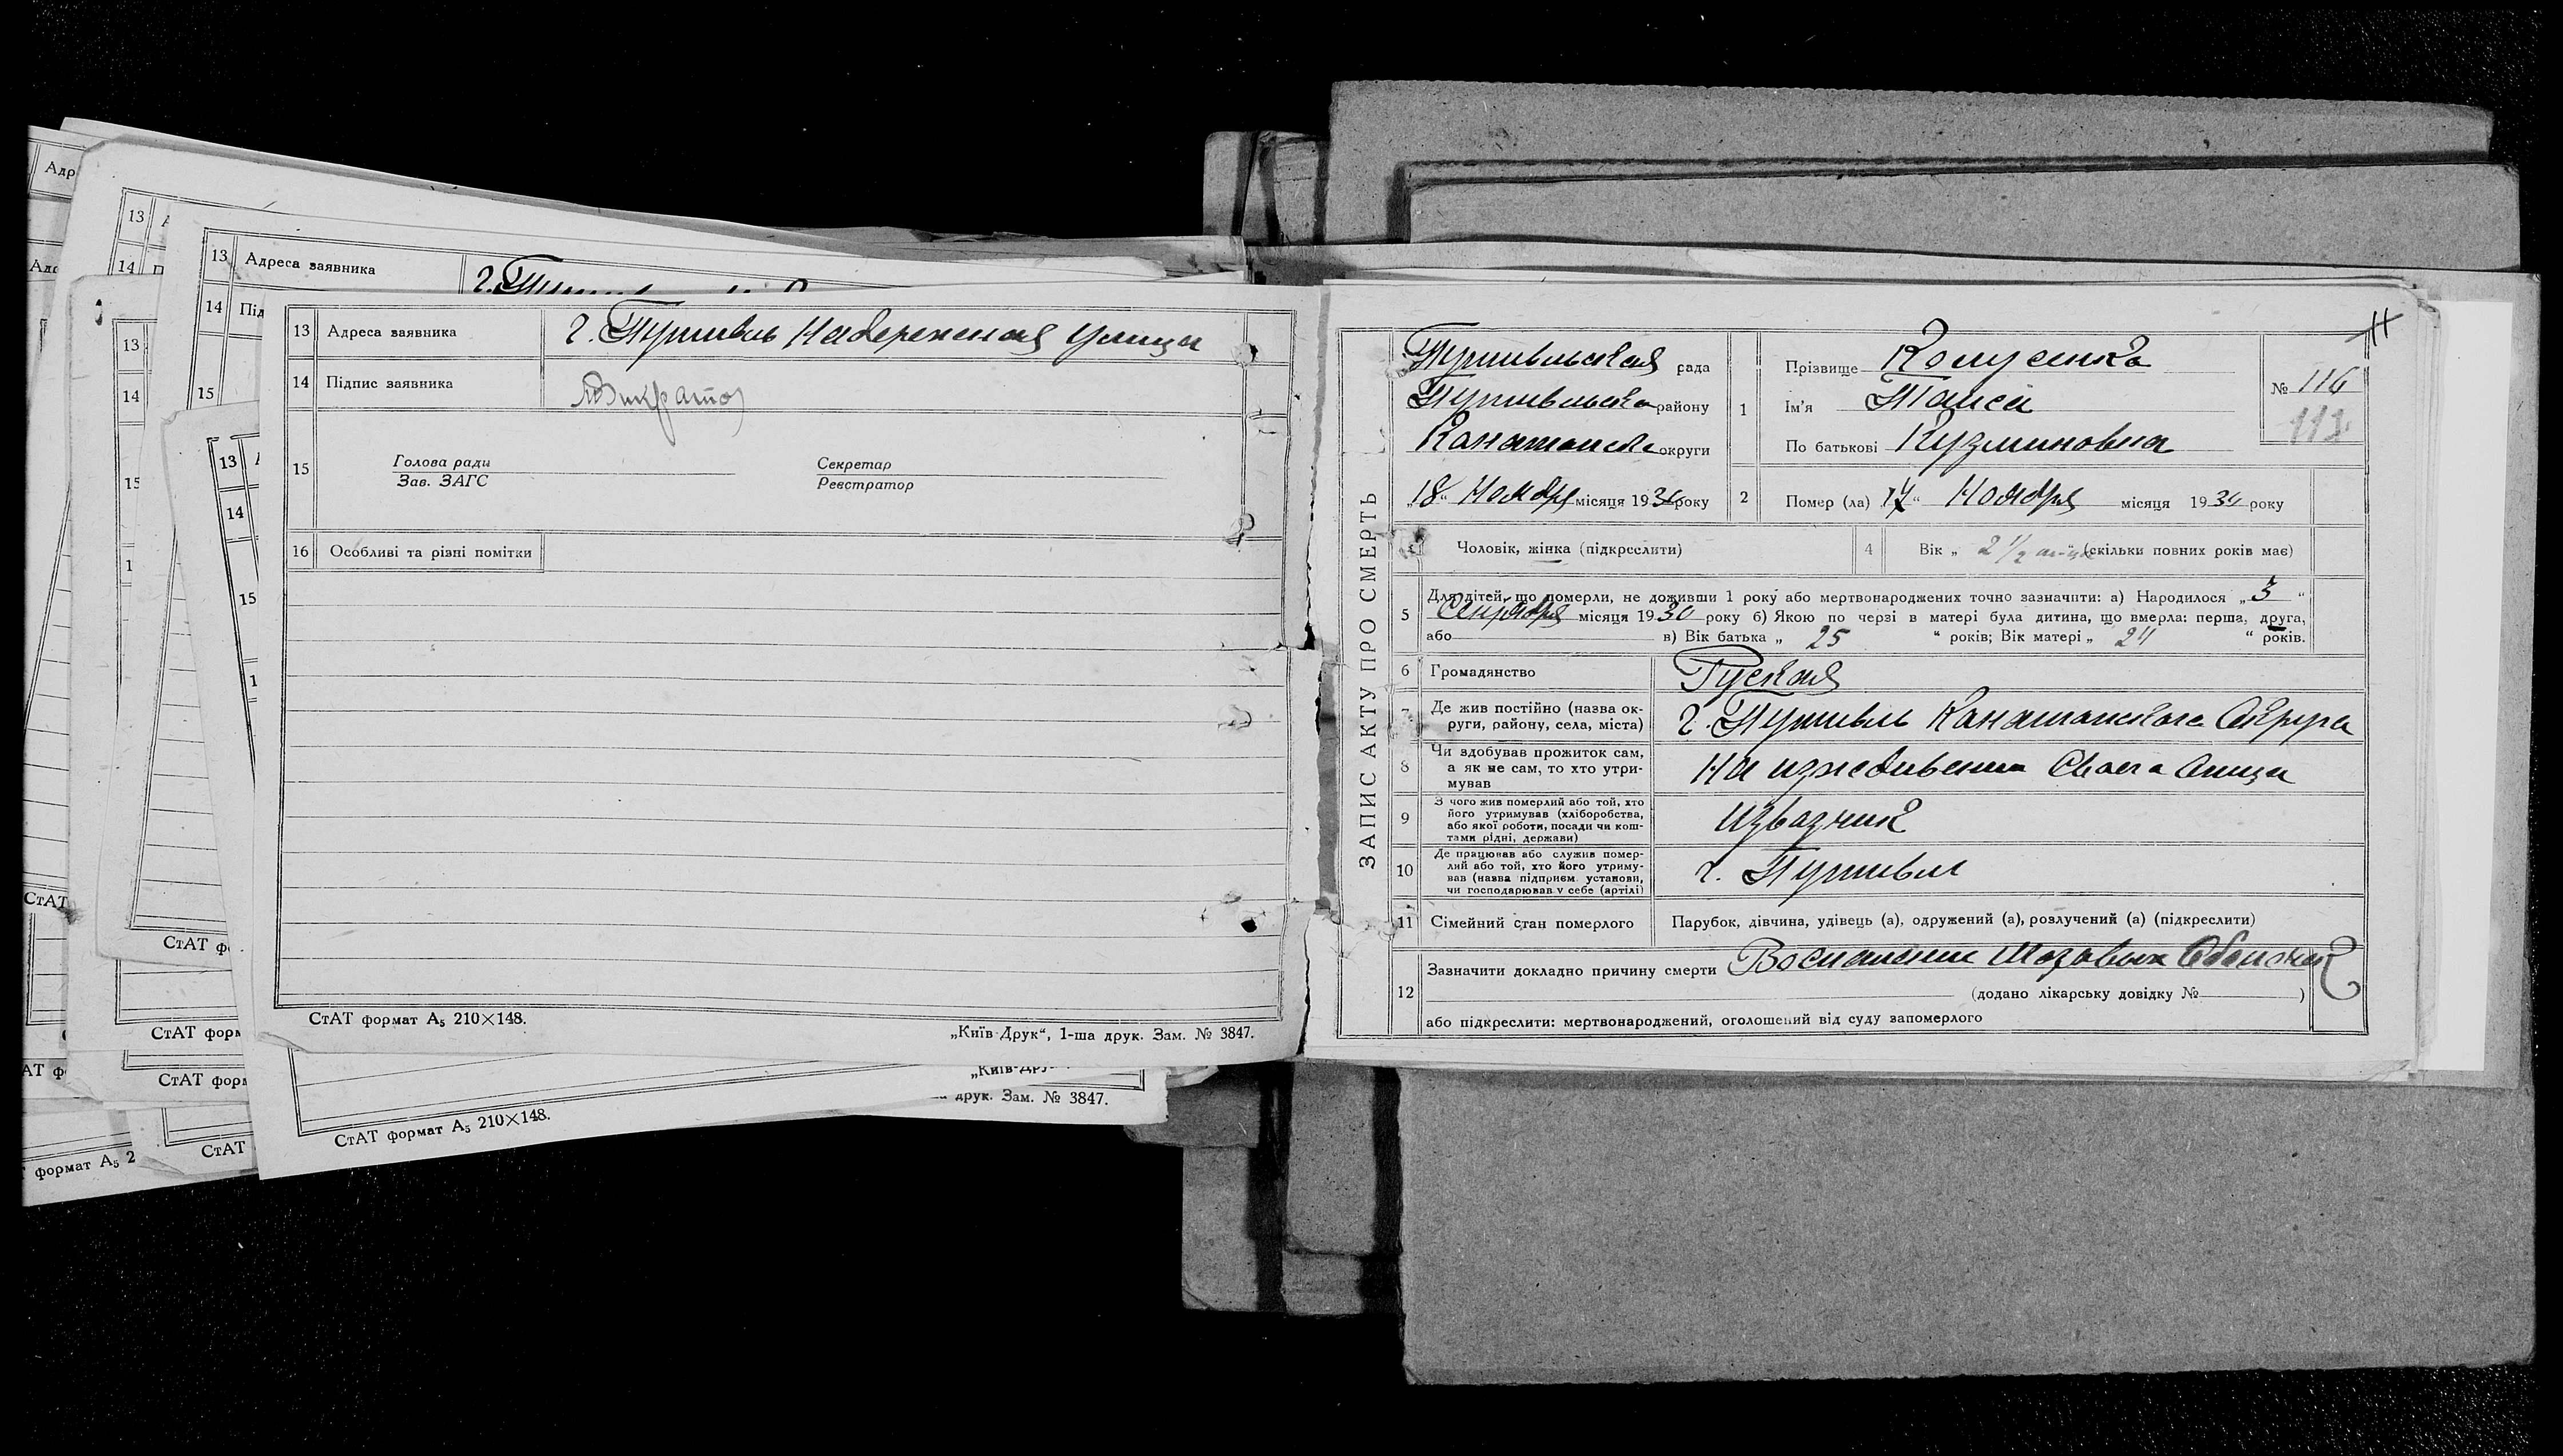 Адр
13
Адс
14
13
14
15
13
14
15
13 Адреса заявника
14 Під
г. Путивль
15
13 Адреса заявника г. Путивль Набережная улица
14 Підпис заявника
15 Голова ради Секретар
Зав. ЗАГС Реєстратор
16 Особливі та різні помітки
СтАТ формат А₅ 210×148.
„Київ-Друк“, 1-ша друк. Зам. № 3847.
СтАТ
СтАТ ф
СтАТ форм
СтАТ форм
СтАТ
формат А₅ 2
„Київ-Др
друк. Зам. № 3847.
СтАТ формат А₅ 210×148.
ЗАПИС АКТУ ПРО СМЕРТЬ
Путивльская рада
Путивльска району
Канатопска округи
„18“ Ноября місяця 1930 року
1 Прізвище
Ім'я Таиса
По батькові Кузминовна
№ 116
113
2 Помер (ла) 17“ Ноября місяця 1930 року
Чоловік, жінка (підкреслити)
4 Вік „ 2 1/2 “ (скільки повних років має)
5 Для дітей, що померли, не доживши 1 року або мертвонароджених точно зазначити: а) Народилося „ 3 “
Сентября місяця 1930 року б) Якою по черзі в матері була дитина, що вмерла: перша, друга,
або в) Вік батька „ 25 “ років; Вік матері „ 24 “ років.
6 Громадянство Руская
7 Де жив постійно (назва ок-
руги, району, села, міста) г. Путивль Канатопскога Округа
8 Чи здобував прожиток сам,
а як не сам, то хто утри-
мував На изжедивении Своега Отца
9 З чого жив померлий або той, хто
його утримував (хліборобства,
або якої роботи, посади чи кош-
тами рідні, держави) Извазчик
10 Де працював або служив помер-
лий або той, хто його утриму-
вав (назва підприєм. установи,
чи господарював у себе (артілі) г. Путивл
11 Сімейний стан померлого Парубок, дівчина, удівець (а), одружений (а), розлучений (а) (підкреслити)
12 Зазначити докладно причину смерти Воспаление Мозавых Оболочек
(додано лікарську довідку № )
або підкреслити: мертвонароджений, оголошений від суду запомерлого